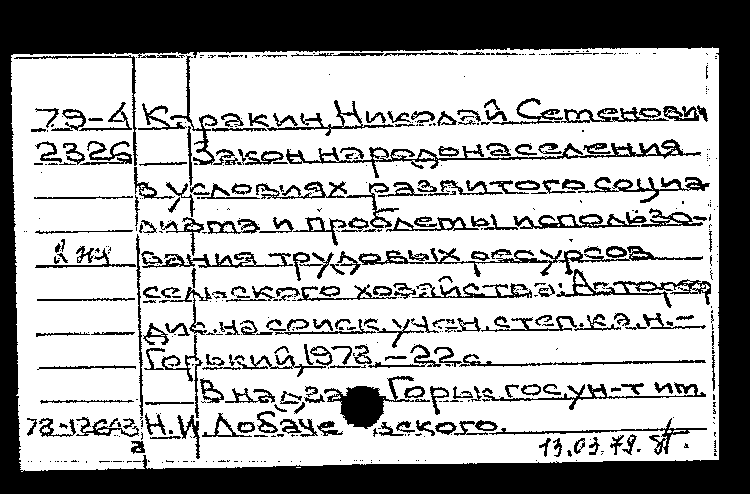 79-4 Каракин, Николай Семенович
2326 Закон народонаселения
в условиях развитого социа-
лизма и проблемы использо-
2 экз вания трудовых ресурсов
сельского хозяйства: Автореф
дис. на соиск. учен. степ. к.э.н. -
Горький, 1978. - 22 с.
В надзаг. Горьк. гос. ун-т им.
Н.И. Лобачевского.
а 13.03.79.